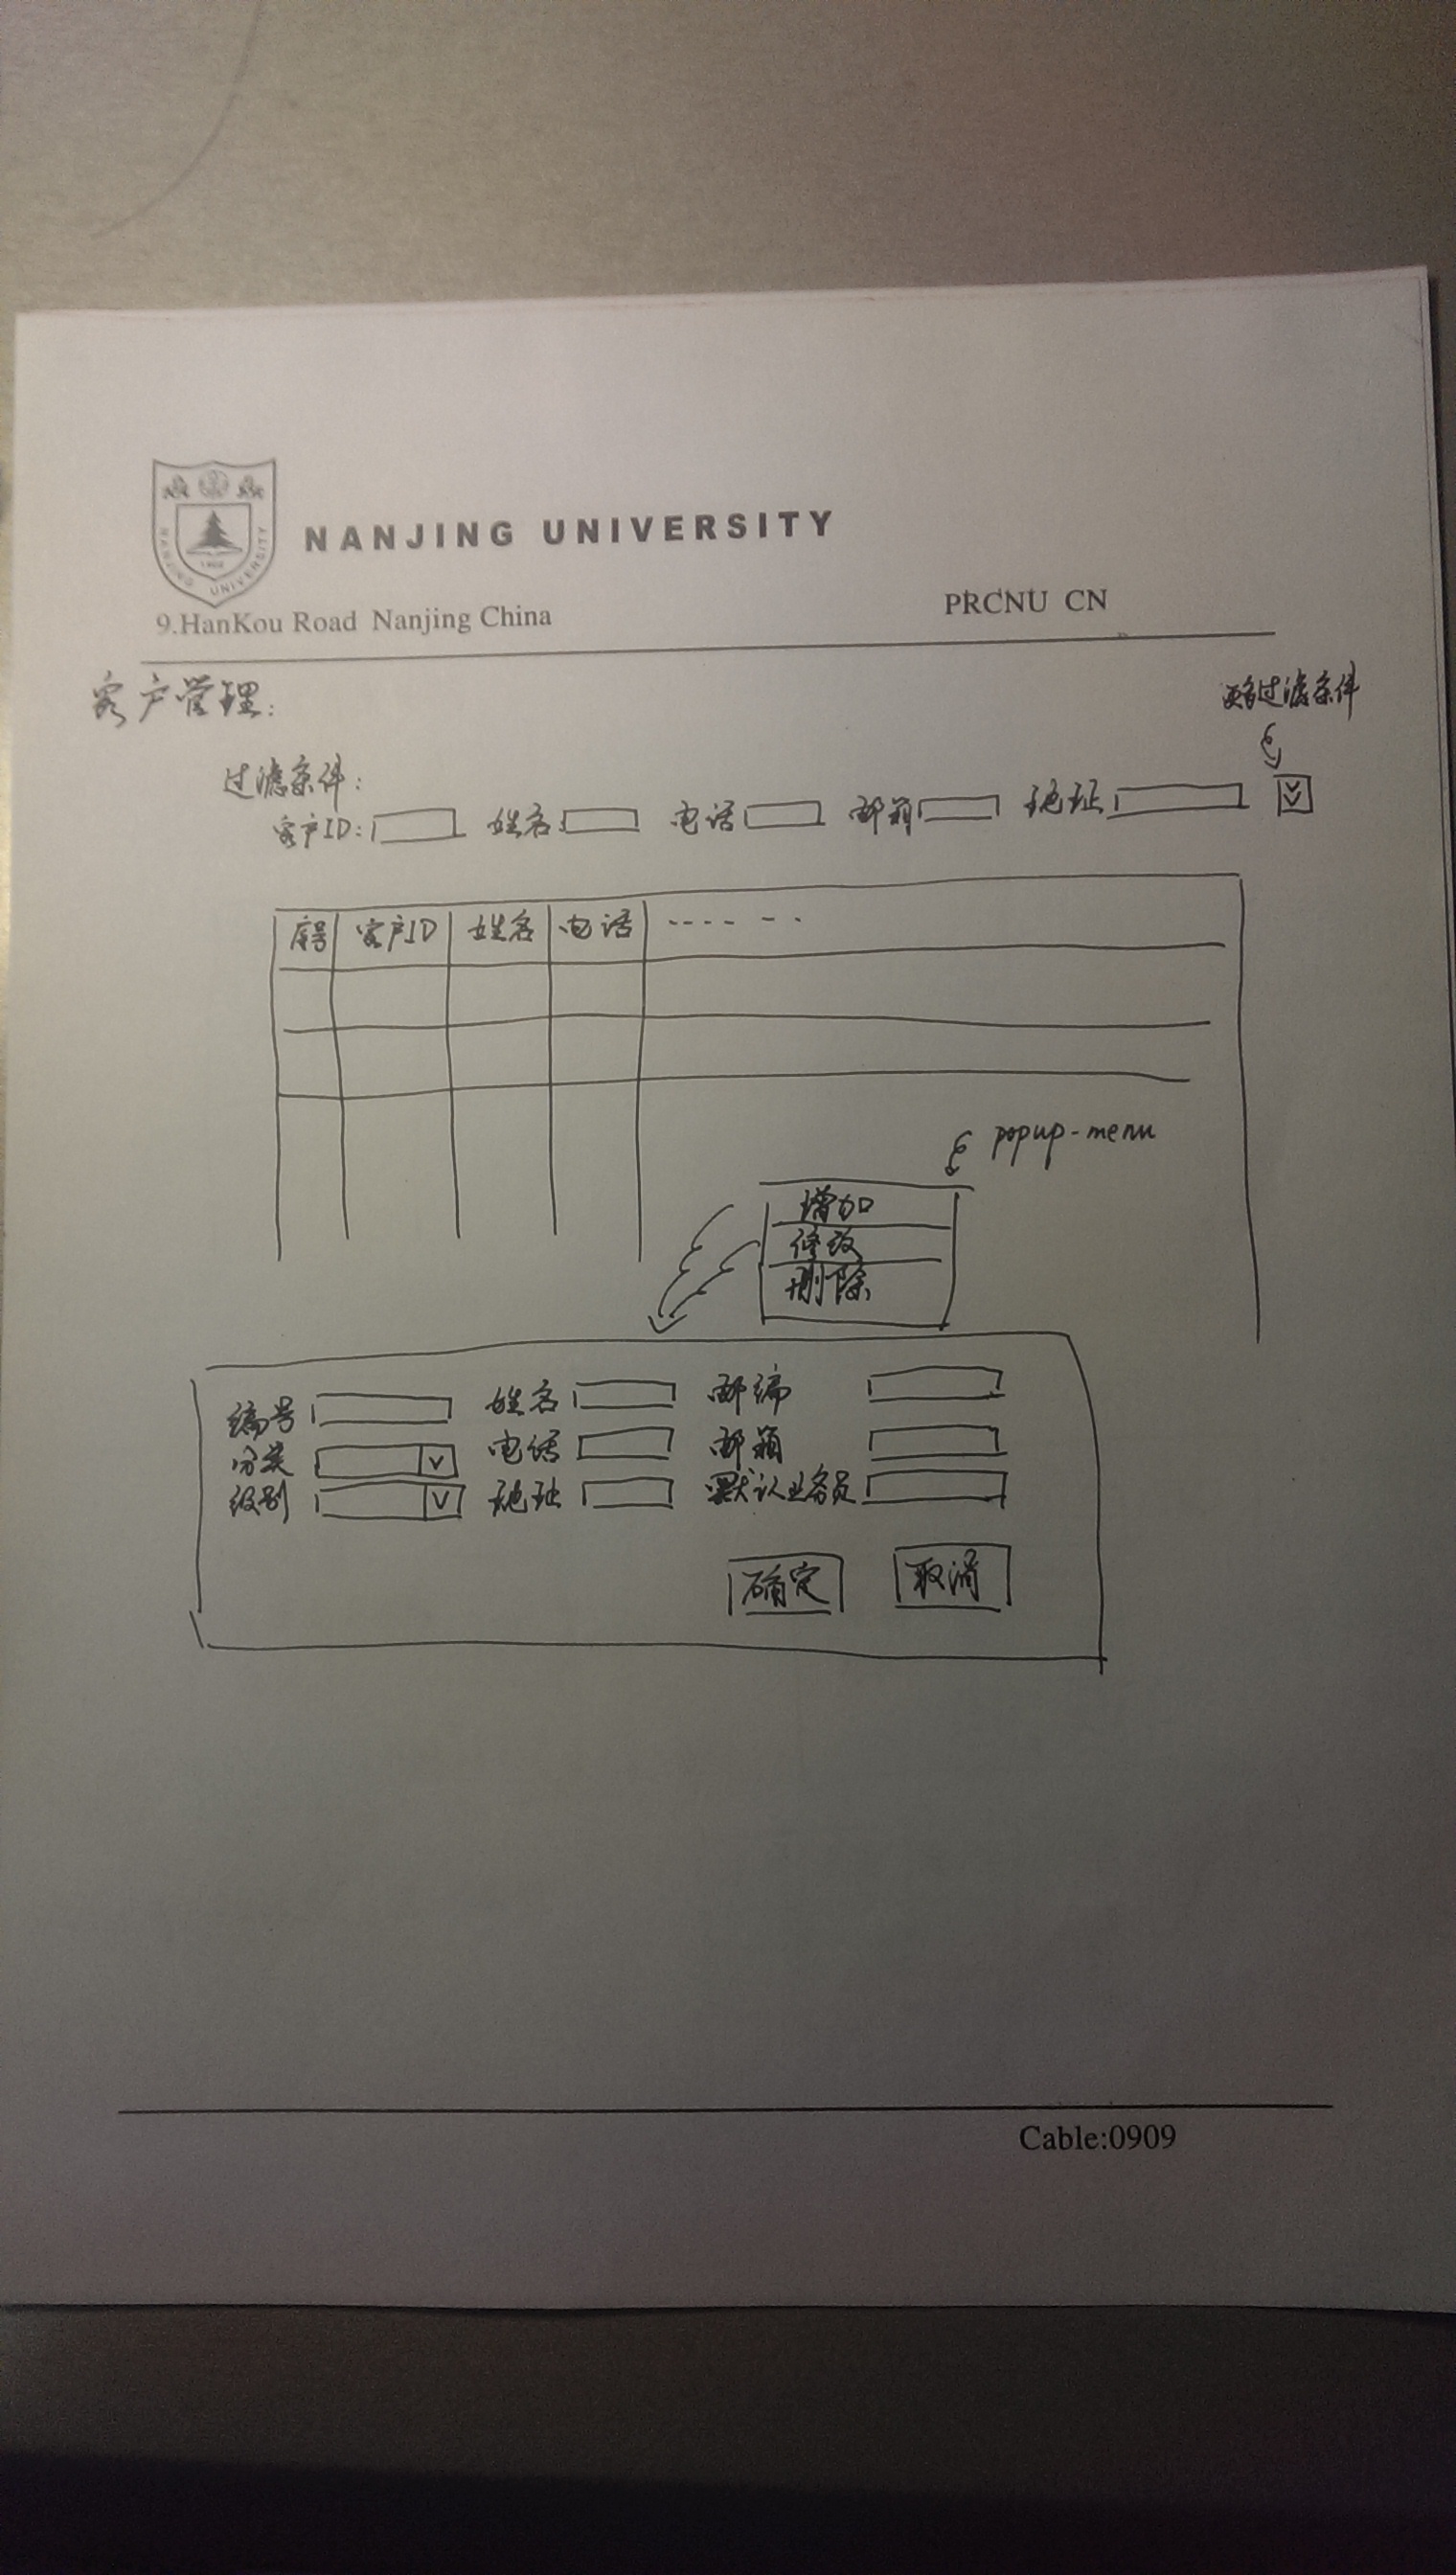 NANJING UNIVERSITY
NANJING UNIVERSITY
1902
9.HanKou Road Nanjing China
PRCNU CN
客户管理:
更多过滤条件
过滤条件:
客户ID: 姓名: 电话 邮箱 地址
序号 客户ID 姓名 电话 ---- - - .
popup-menu
增加
修改
删除
编号 姓名 邮编
分类 电话 邮箱
级别 地址 默认业务员
确定 取消
Cable:0909